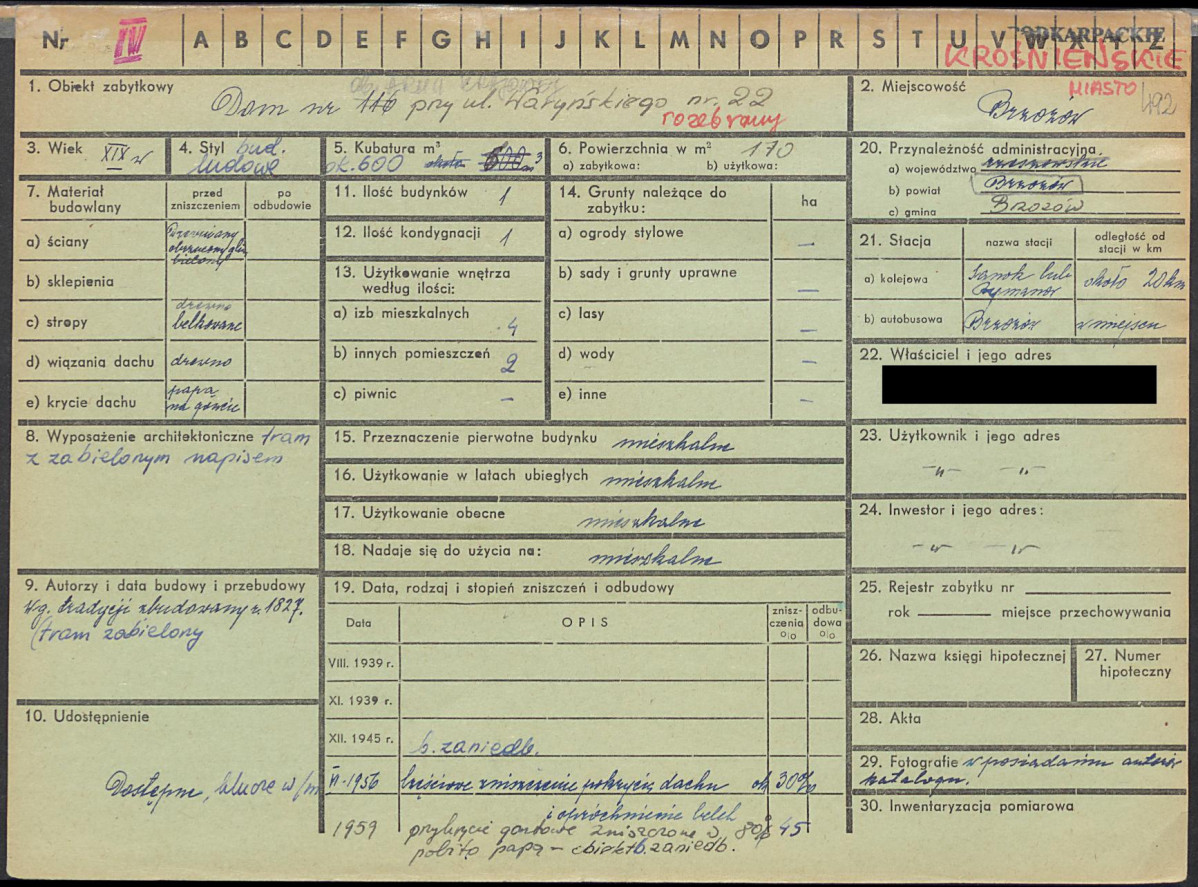 Nr IV A B C D E F G H I J K L M N O P R S T U V W X Y Z
PODKARPACKIE
KROŚNIEŃSKIE
MIASTO 492
1. Obiekt zabytkowy
Dom nr 116 przy ul. Waryńskiego nr. 22
rozebrany
2. Miejscowość
Brzozów
3. Wiek XIX w
4. Styl bud.
ludowe
5. Kubatura m³
ok. 600 około 600 m³
6. Powierzchnia w m² 170
a) zabytkowa: b) użytkowa:
20. Przynależność administracyjna
a) województwo rzeszowskie
b) powiat Brzozów
c) gmina Brzozów
7. Materiał budowlany
przed zniszczeniem
po odbudowie
a) ściany Drewniany obrzucony gliną bielony
b) sklepienia
c) stropy drewno belkowane
d) wiązania dachu drewno
e) krycie dachu papa na goncie
11. Ilość budynków 1
12. Ilość kondygnacji 1
13. Użytkowanie wnętrza według ilości:
a) izb mieszkalnych 4
b) innych pomieszczeń 2
c) piwnic –
14. Grunty należące do zabytku: ha
a) ogrody stylowe –
b) sady i grunty uprawne –
c) lasy –
d) wody –
e) inne –
21. Stacja
nazwa stacji
odległość od stacji w km
a) kolejowa Sanok lub Rymanów około 20 km
b) autobusowa Brzozów w miejscu
22. Właściciel i jego adres
8. Wyposażenie architektoniczne tram
z zabielonym napisem
15. Przeznaczenie pierwotne budynku mieszkalne
16. Użytkowanie w latach ubiegłych mieszkalne
17. Użytkowanie obecne mieszkalne
18. Nadaje się do użycia na: mieszkalne
23. Użytkownik i jego adres
-"- -"-
24. Inwestor i jego adres:
-"- -"-
9. Autorzy i data budowy i przebudowy
Wg. tradycji zbudowany r. 1827.
(tram zabielony
19. Data, rodzaj i stopień zniszczeń i odbudowy
Data OPIS zniszczenia % odbudowa %
VIII. 1939 r.
XI. 1939 r.
XII. 1945 r. b. zaniedb.
VI-1956 częściowe zniszczenie pokrycia dachu ok 30%
i opróchnienie belek
1959 przykrycie gontowe zniszczone w 80% 45
pobito papą – obiekt b. zaniedb.
25. Rejestr zabytku nr
rok miejsce przechowywania
26. Nazwa księgi hipotecznej
27. Numer hipoteczny
10. Udostępnienie
Dostępne, klucze w/m
28. Akta
29. Fotografie w posiadaniu autorów
katalogu.
30. Inwentaryzacja pomiarowa